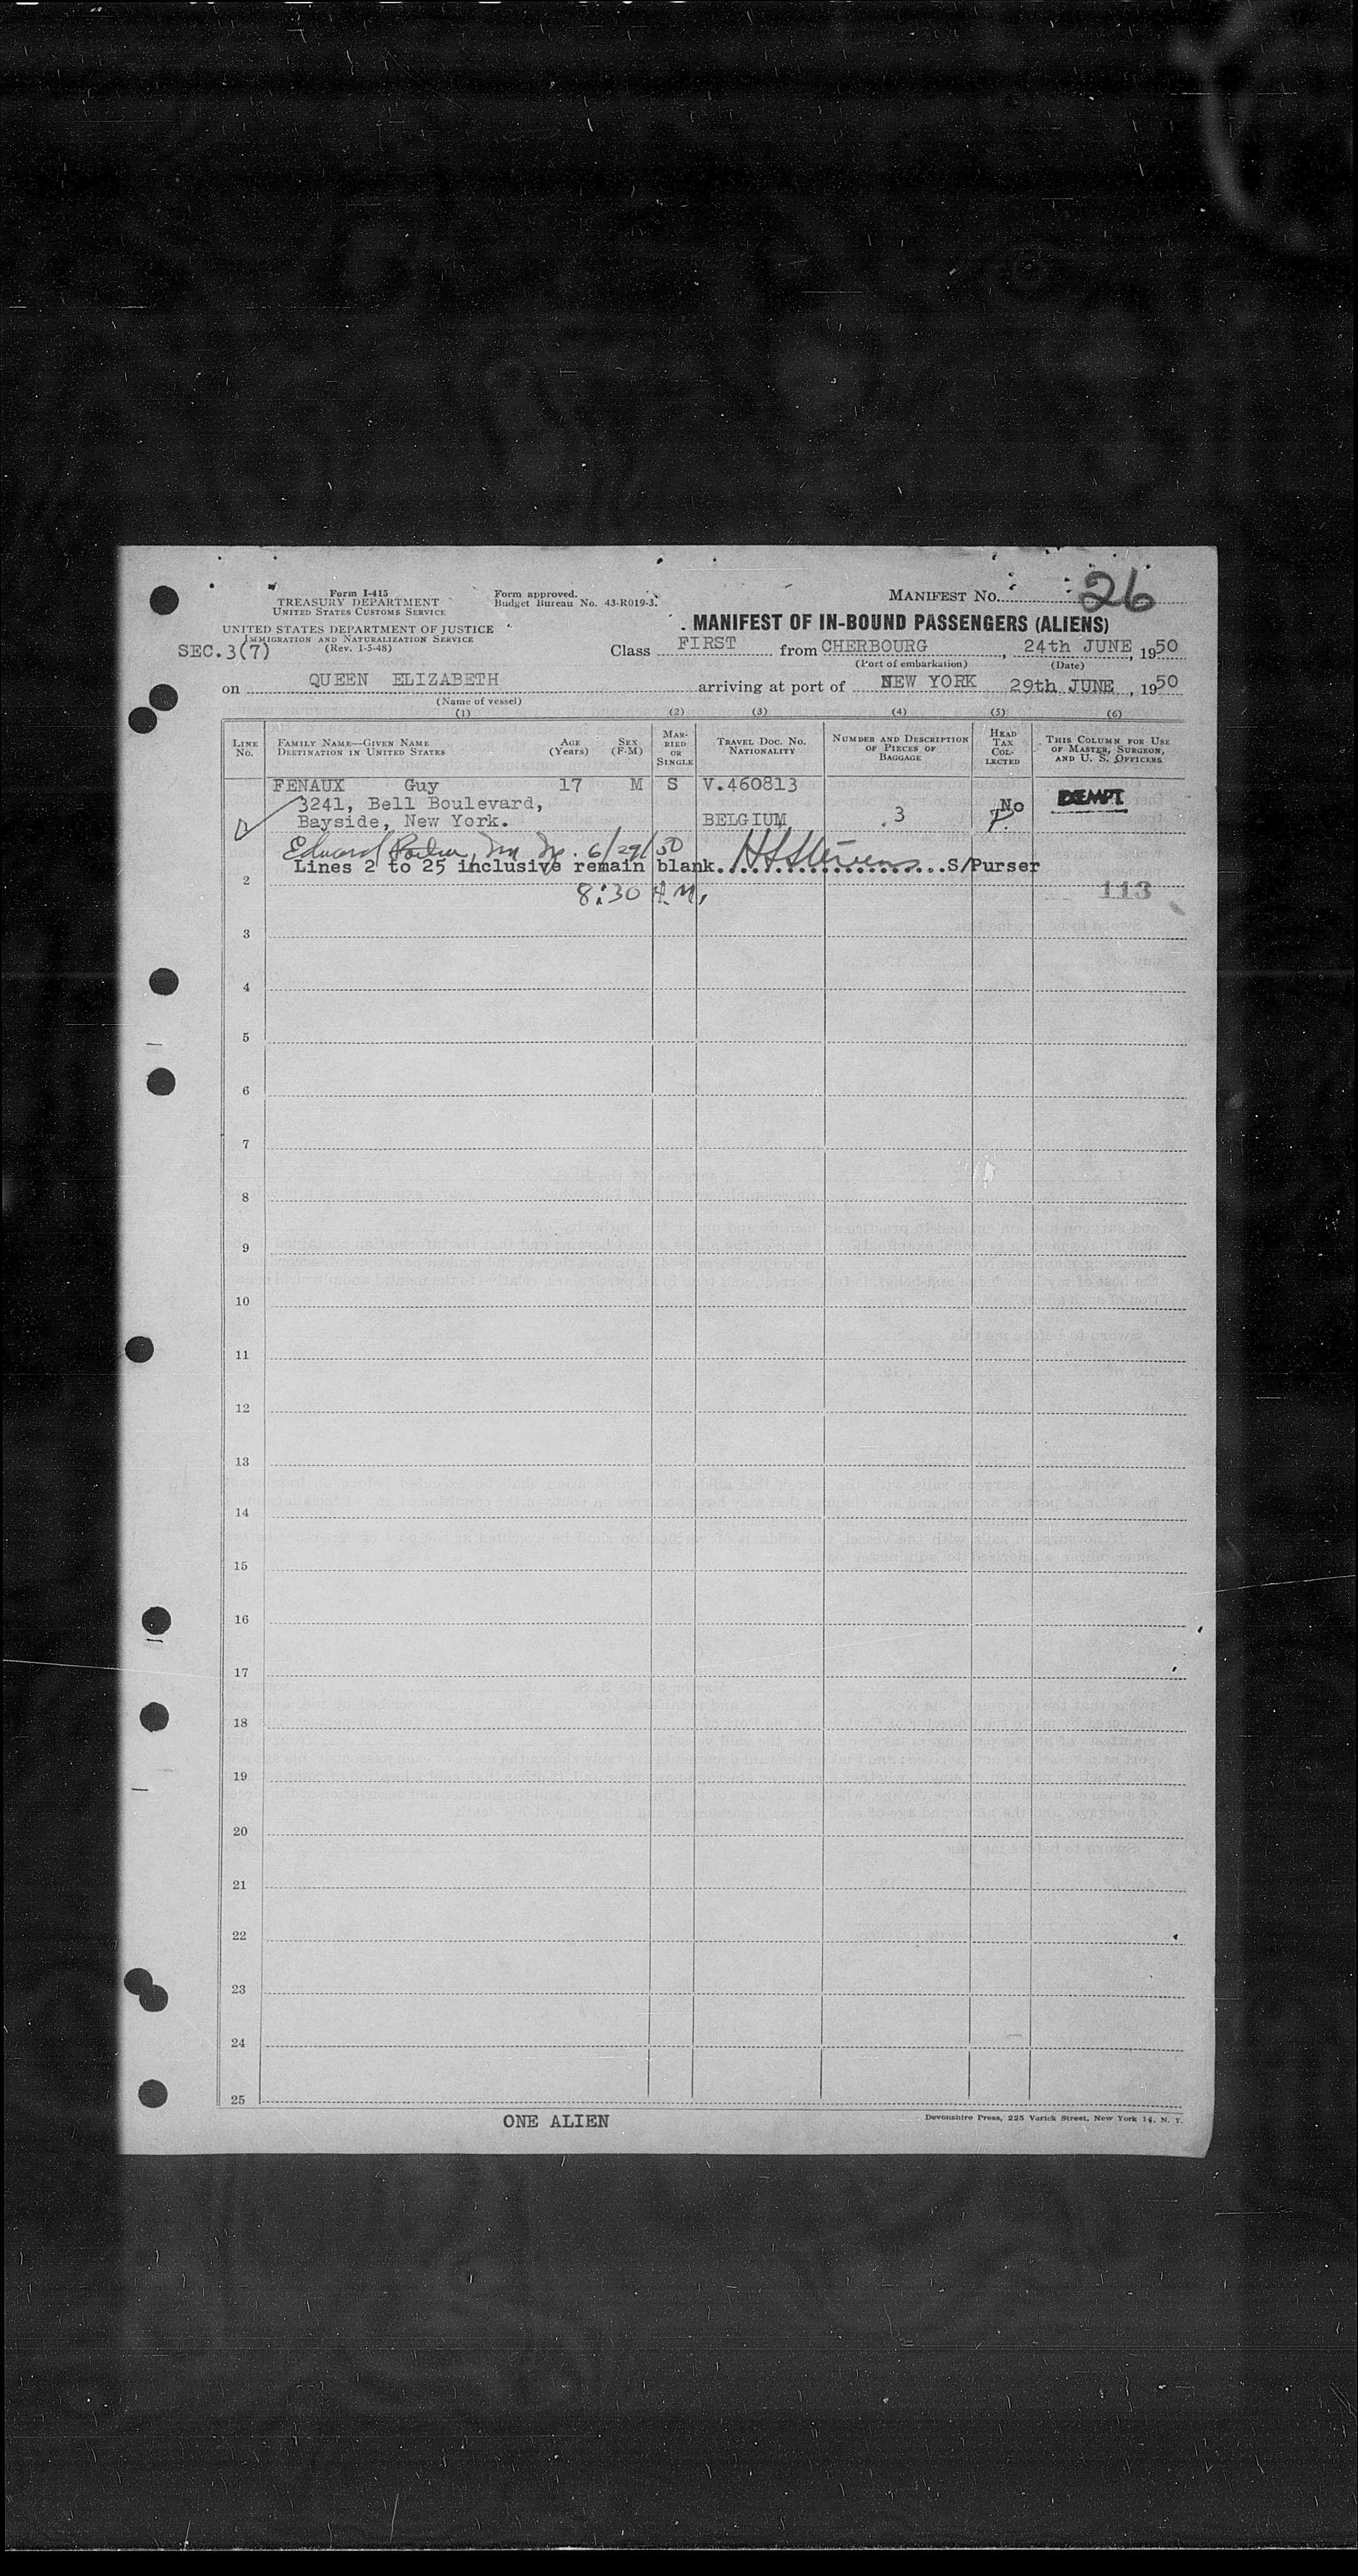 Form I-415
TREASURY DEPARTMENT
UNITED STATES CUSTOMS SERVICE
Form approved.
Budget Bureau No. 43-R019-3.
MANIFEST No. 26
UNITED STATES DEPARTMENT OF JUSTICE
IMMIGRATION AND NATURALIZATION SERVICE
(Rev. 1-5-48)
SEC.3(7)
MANIFEST OF IN-BOUND PASSENGERS (ALIENS)
Class FIRST from CHERBOURG, 24th JUNE, 1950
(Port of embarkation) (Date)
on QUEEN ELIZABETH arriving at port of NEW YORK 29th JUNE, 1950
(Name of vessel)
(1) (2) (3) (4) (5) (6)
LINE No.
FAMILY NAME—GIVEN NAME
DESTINATION IN UNITED STATES
AGE (Years)
SEX (F-M)
MARRIED OR SINGLE
TRAVEL DOC. No. NATIONALITY
NUMBER AND DESCRIPTION OF PIECES OF BAGGAGE
HEAD TAX COLLECTED
THIS COLUMN FOR USE OF MASTER, SURGEON, AND U. S. OFFICERS
FENAUX Guy 17 M S V.460813
3241, Bell Boulevard, No EXEMPT
Bayside, New York. BELGIUM 3
Edward 6/29/50
Lines 2 to 25 inclusive remain blank. H Stevens S/Purser
2
8:30 A.M. 113
3
4
5
6
7
8
9
10
11
12
13
14
15
16
17
18
19
20
21
22
23
24
25
ONE ALIEN
Devonshire Press, 225 Varick Street, New York 14, N. Y.